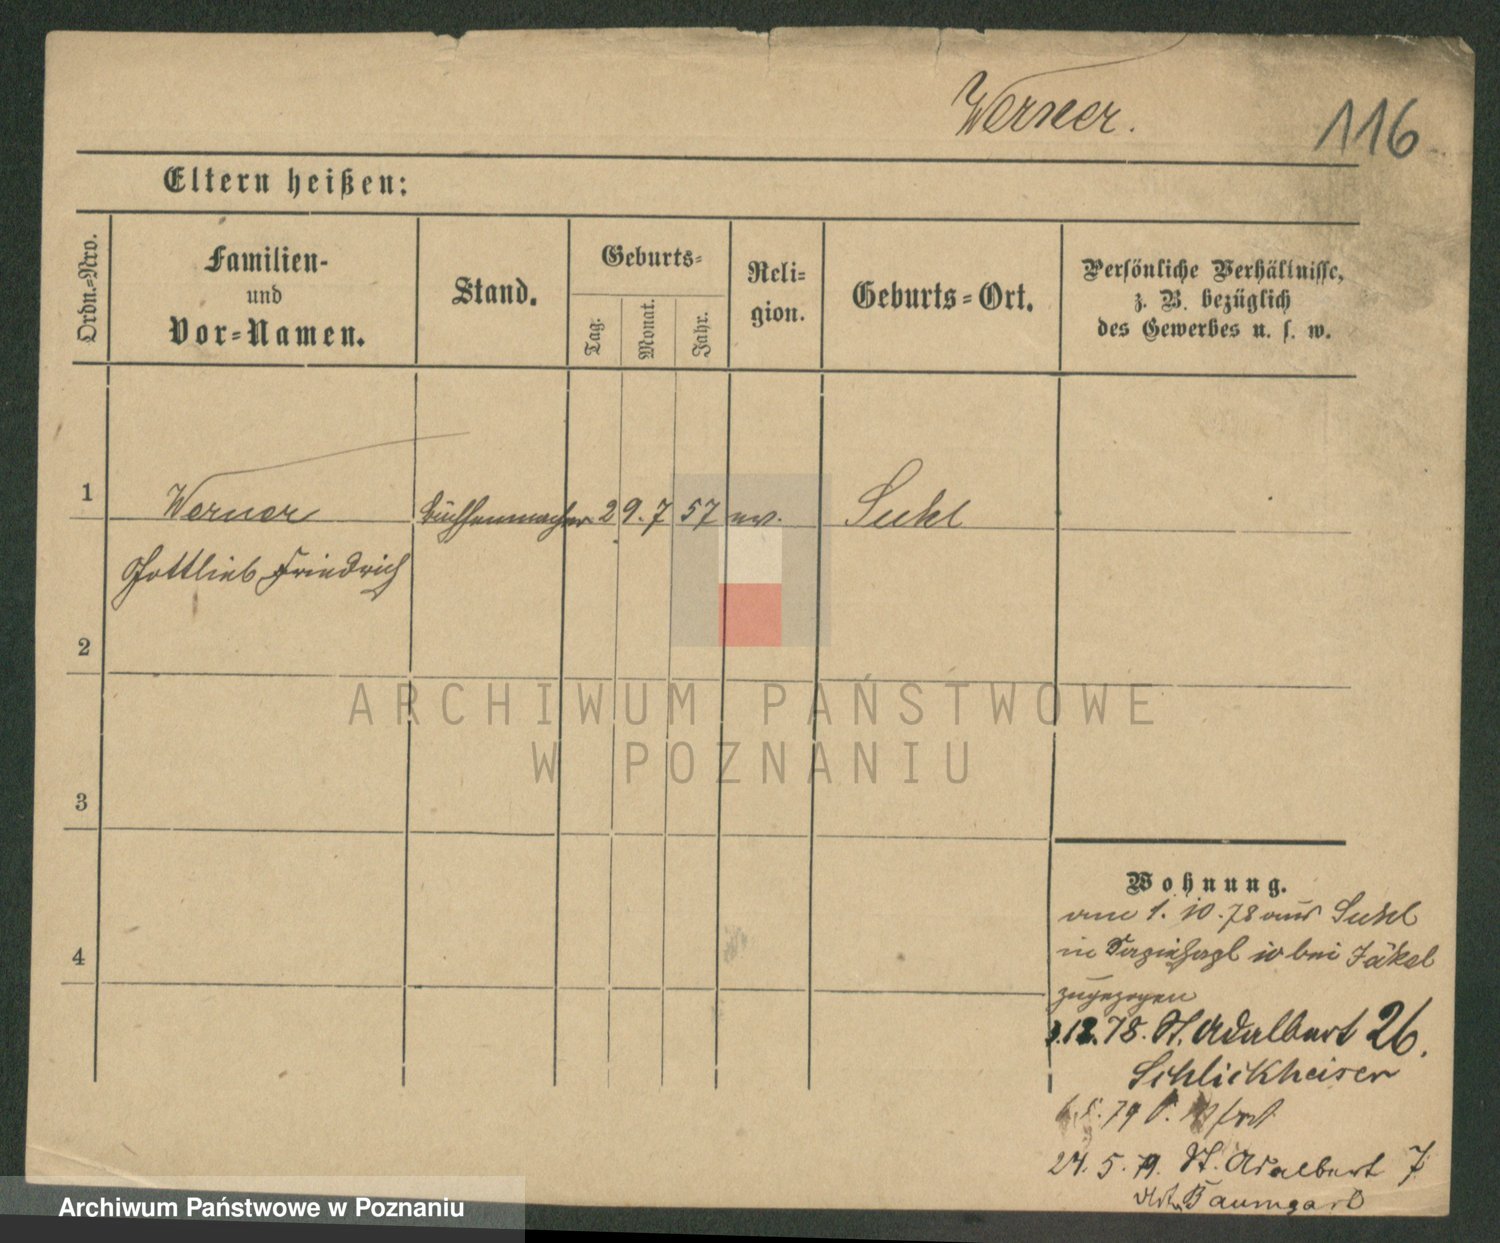 Werner.
116
Eltern heißen:
Ordn.-Nro.
Familien-
und
Vor-Namen.
Stand.
Geburts-
Tag.
Monat.
Jahr.
Reli-
gion.
Geburts-Ort.
Persönliche Verhältnisse,
z. B. bezüglich
des Gewerbes u. s. w.
1
Werner
Büchsenmacher
29.7 57
ev.
Suhl
Gottlieb Friedrich
2
ARCHIWUM PAŃSTWOWE
W POZNANIU
3
4
Wohnung.
am 1. 10.78 aus Suhl
in 10 bei Jäkel
zugezogen
78. St. Adalbert 26.
Schlickheiser
79
24. 5. 79. St. Adalbert 7
Baumgard
Archiwum Państwowe w Poznaniu